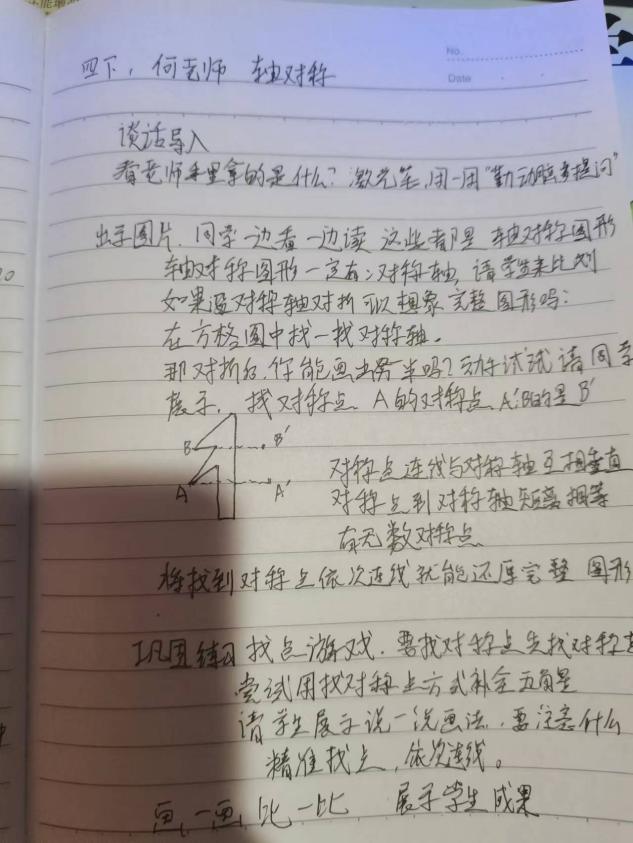 No.
Date
四下，何老师 轴对称
谈话导入
看老师手里拿的是什么？激光笔，用一用“勤动脑多提问”
出示图片，同学一边看一边读 这些都是 轴对称图形
轴对称图形一定有：对称轴，请学生来比划
如果沿对称轴对折可以想象完整图形吗：
在方格图中找一找对称轴。
那对折后，你能画出另一半吗？动手试试 请同学
展示， 找对称点 A的对称点A'，B的是B'
B B'
A A'
对称点连线与对称轴互相垂直
对称点到对称轴距离相等
有无数对称点
将找到对称点依次连线就能还原完整 图形
巩固练习 找点游戏．要找对称点先找对称
尝试用找对称点方式补全五角星
请学生展示说一说画法．要注意什么
精准找点，依次连线。
画一画，比一比 展示学生成果